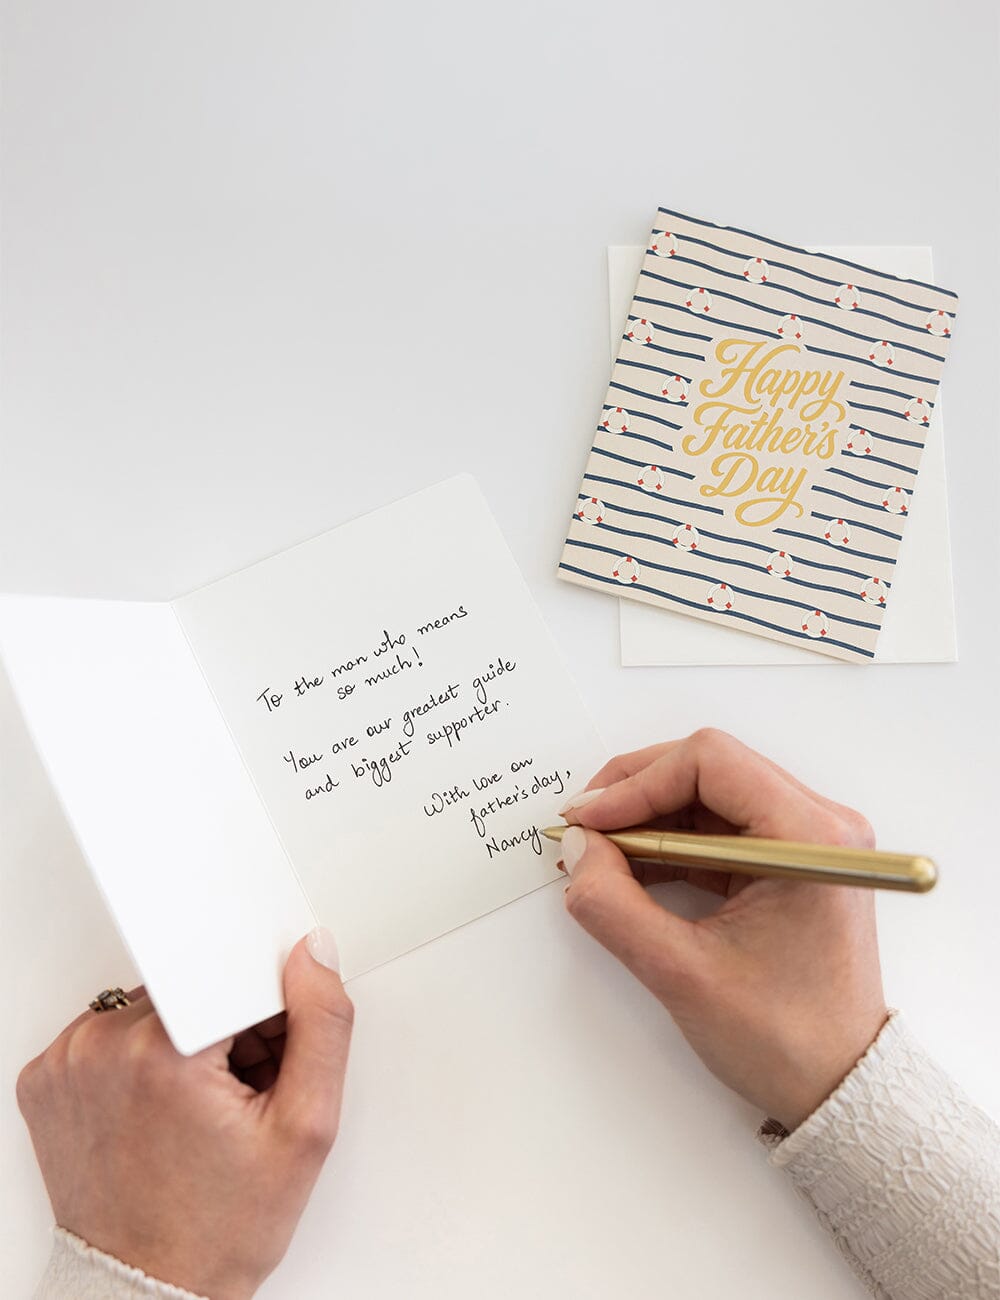 Happy
Father's
Day
To the man who means
so much!
You are our greatest guide
and biggest supporter.
With love on
father's day,
Nancy